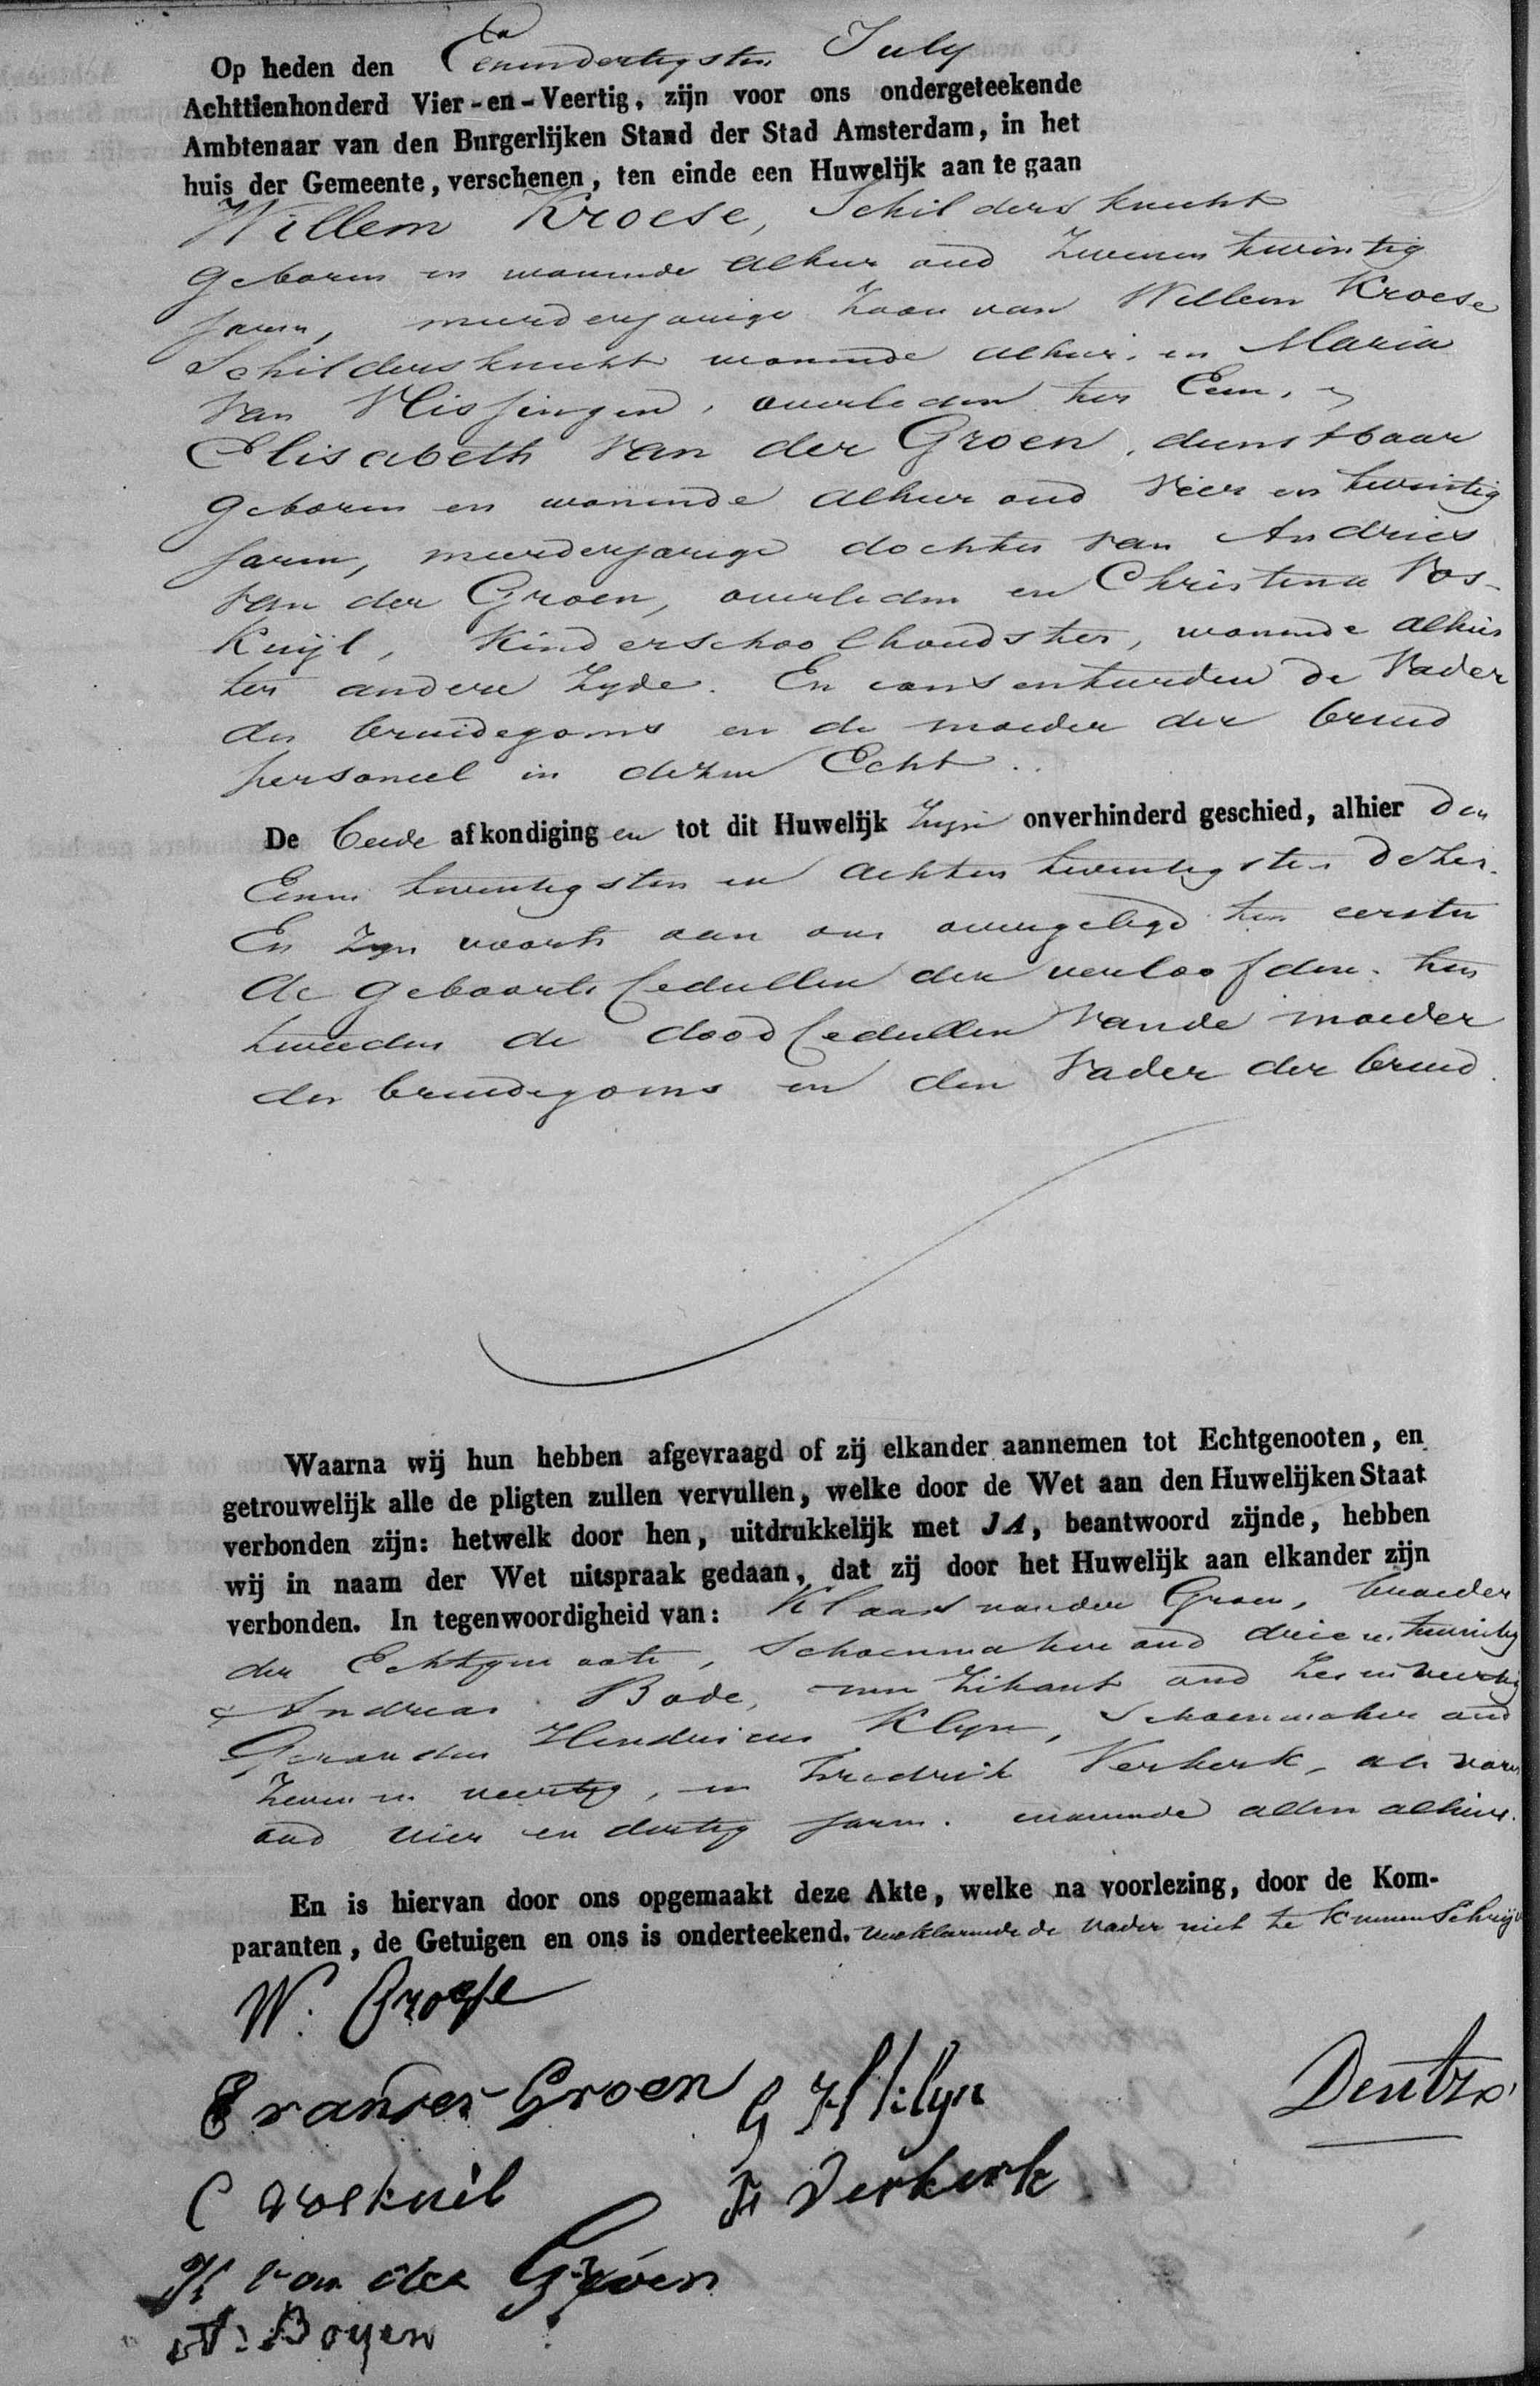 Op heden den Eenendertigsten July
Achttienhonderd Vier-en-Veertig, zijn voor ons ondergeteekende
Ambtenaar van den Burgerlijken Stand der Stad Amsterdam, in het
huis der Gemeente, verschenen, ten einde een Huwelijk aan te gaan
Willem Kroese, Schildersknecht
geboren en wonende alhier oud zevenentwintig
jaren, meerderjarige Zoon van Willem Kroese
Schildersknecht wonende alhier, en Maria
van Vlissingen, overleden ter Eene, en
Elisabeth van der Groen, dienstbaar
geboren en wonende alhier oud vier en twintig
jaren, meerderjarige dochter van Andries
van der Groen, overleden en Christina Vos-
kuijl, Kinderschoolhoudster, wonende alhier
ter andere Zyde. En consenteerden de Vader
des bruidegoms en de moeder der bruid
personeel in dezen Echt.
De beide afkondigingen tot dit Huwelijk zijn onverhinderd geschied, alhier den
Eenen twintigsten en achten twintigsten dezer.
En zyn voorts aan ons overgelegd ten eersten
de geboorte Cedullen der verloofden. ten
tweeden de dood Cedullen van de moeder
des bruidegoms en den Vader der bruid.
Waarna wij hun hebben afgevraagd of zij elkander aannemen tot Echtgenooten, en
getrouwelijk alle de pligten zullen vervullen, welke door de Wet aan den Huwelijken Staat
verbonden zijn: hetwelk door hen, uitdrukkelijk met JA, beantwoord zijnde, hebben
wij in naam der Wet uitspraak gedaan, dat zij door het Huwelijk aan elkander zijn
verbonden. In tegenwoordigheid van: Klaas van der Groen, broeder
der Echtgenoote, Schoenmaker oud drieentwintig
Andreas Bode, muzikant oud zesenveertig
Gerardus Hendricus Klyn, Schoenmaker oud
Zeven en veertig, en Fredrik Verkerk, als voren
oud vier en dertig jaren. wonende allen alhier.
En is hiervan door ons opgemaakt deze Akte, welke na voorlezing, door de Kom-
paranten, de Getuigen en ons is onderteekend. verklarende de Vader niet te kunnen Schrijv
W. Kroese
E van der Groen G H Klyn
Dentz
C Voskuil F Verkerk
K van der Groen
A: Boyen